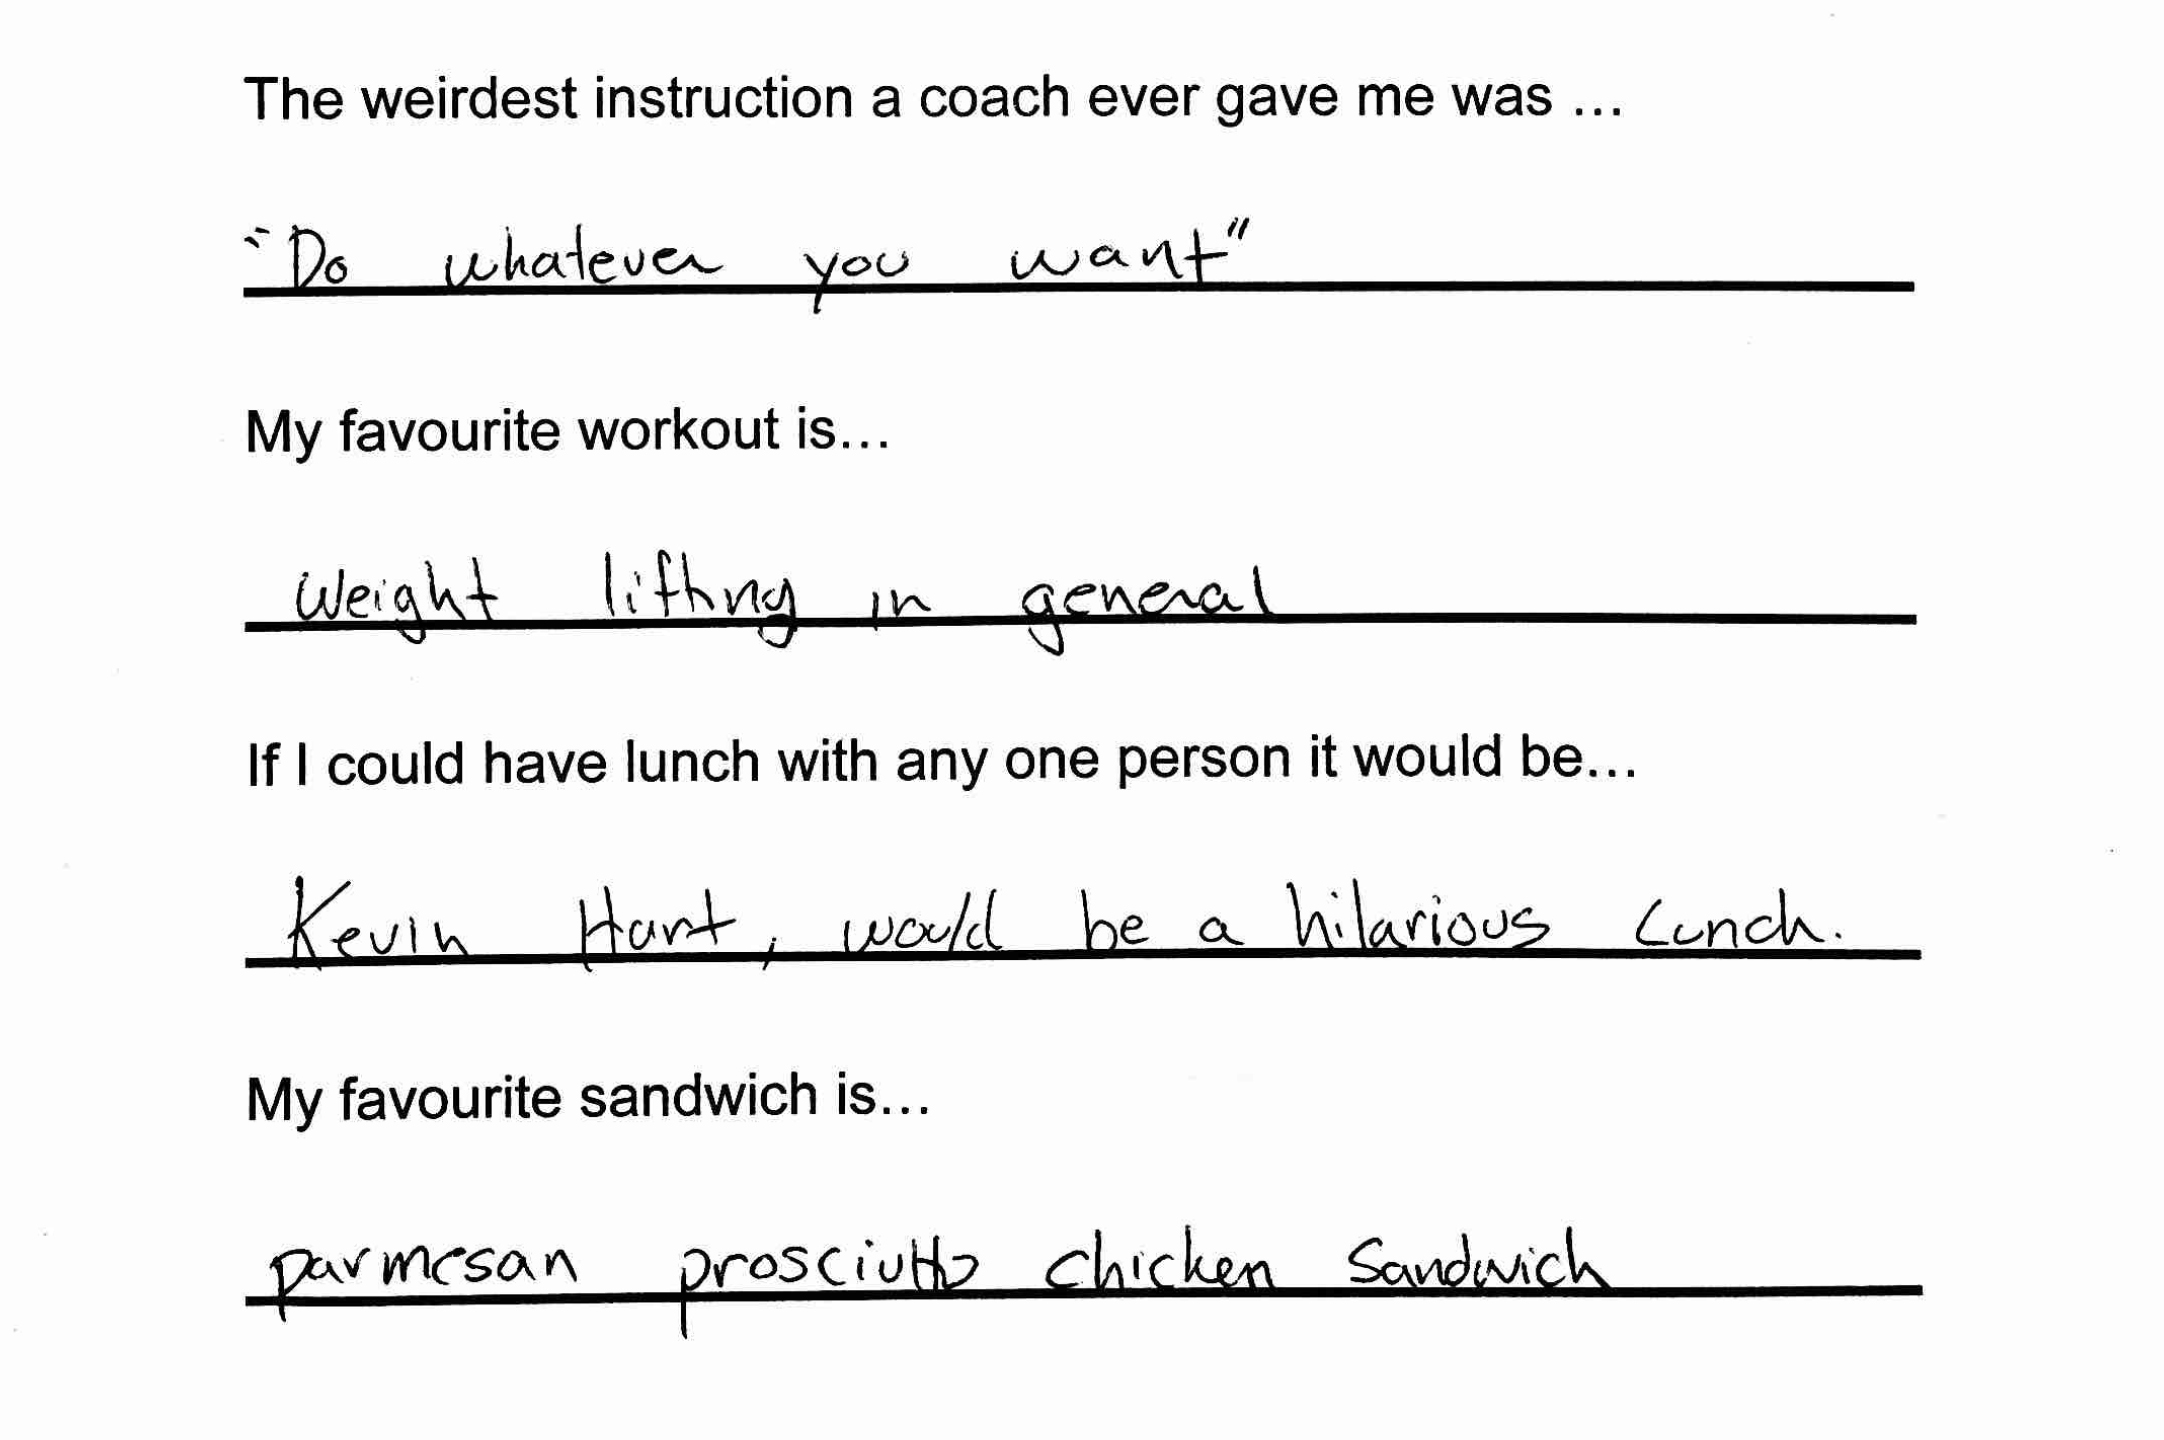 The weirdest instruction a coach ever gave me was ...
"Do whatever you want"
My favourite workout is...
Weight lifting in general
If I could have lunch with any one person it would be...
Kevin Hart, would be a hilarious Lunch.
My favourite sandwich is...
parmesan prosciutto chicken Sandwich